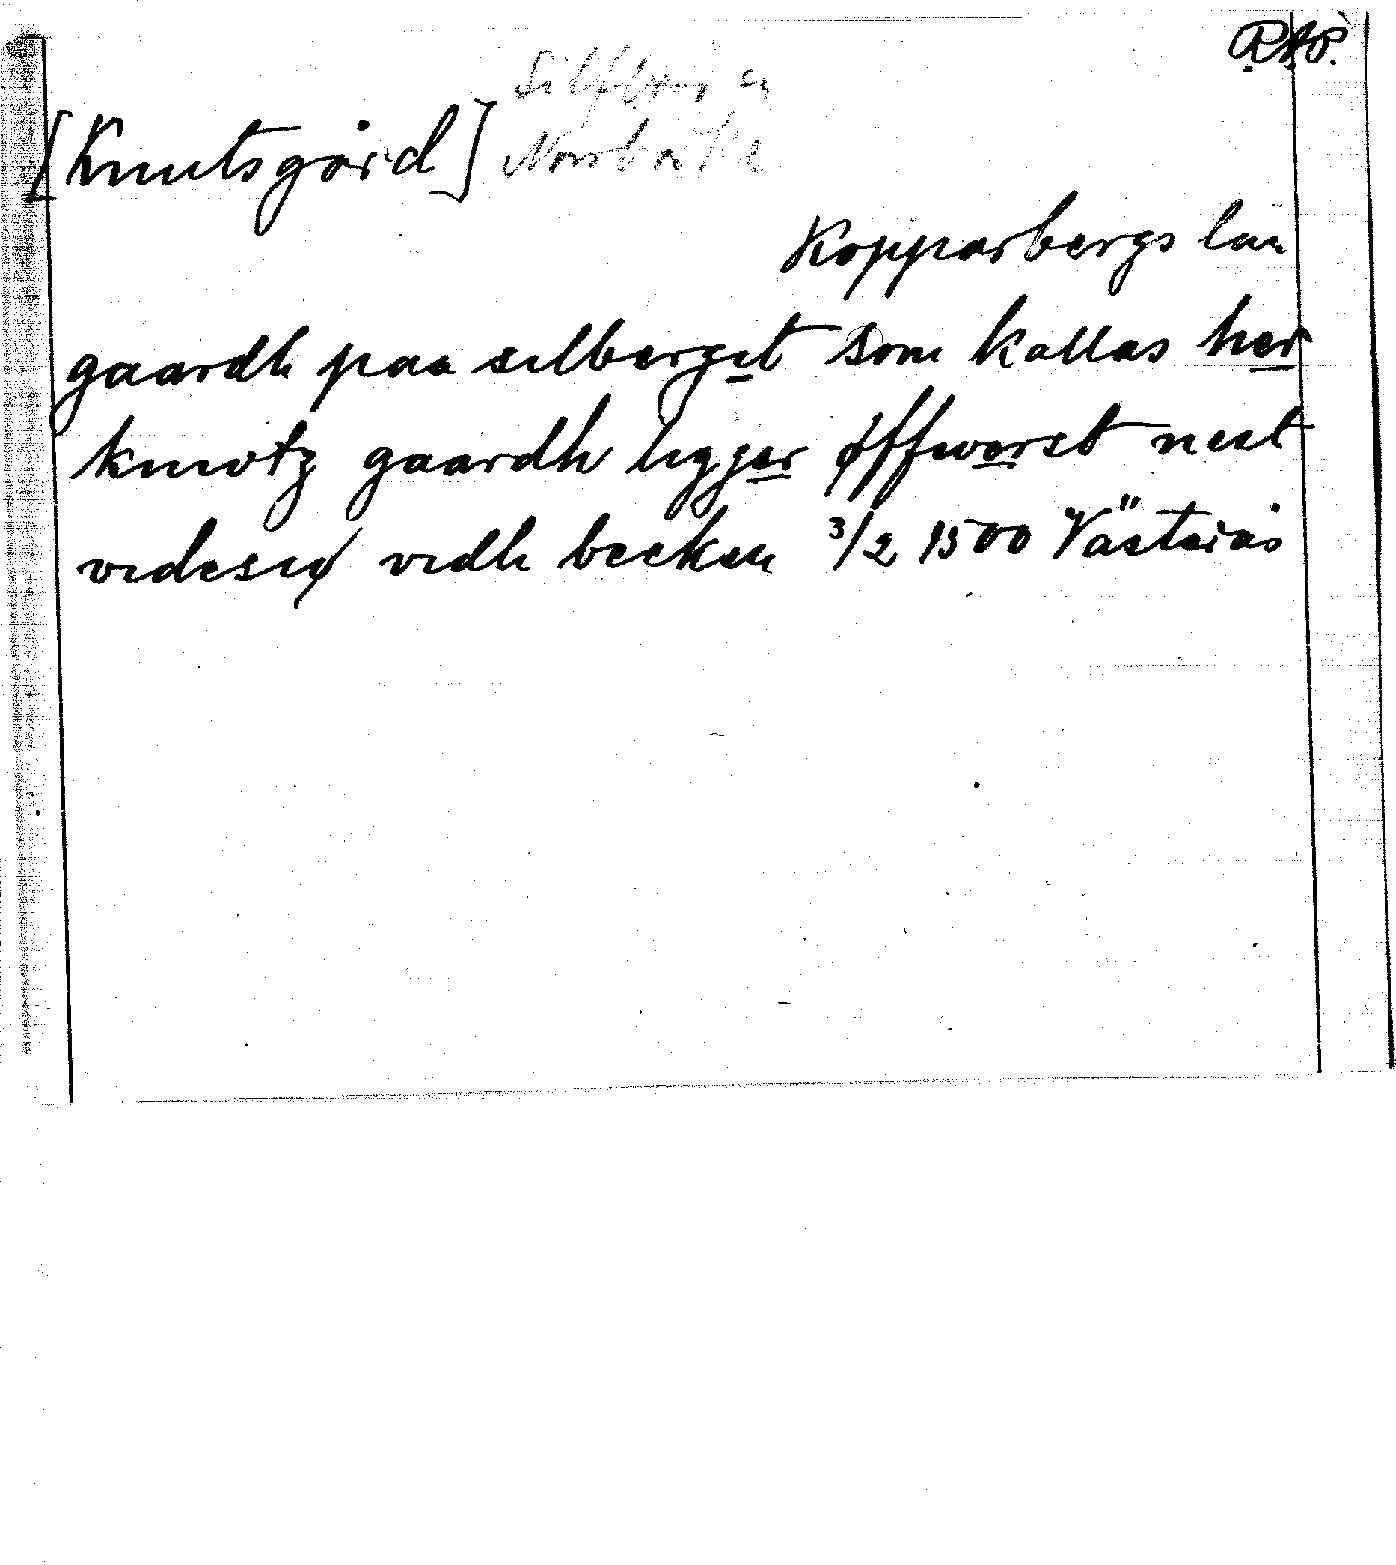 RAP.
Silfberg
Norrbärke
[Knutsgård]
Kopparbergs län
gaardh paa selberget som kallas her
knwtz gaardh ligger øffwerst nest
videsiø vidh becken 3/2 1500 Västerås